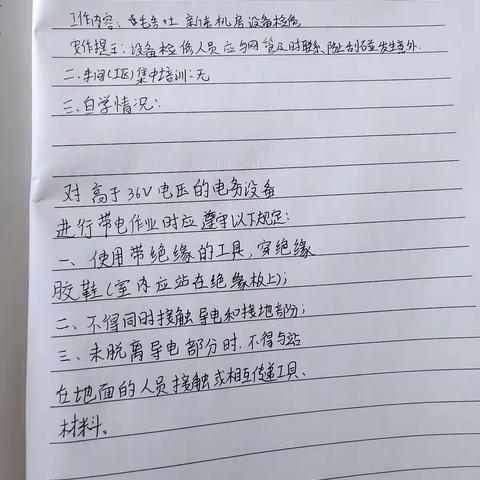 工作内容：吐 机房设备检修
安全提示：设备检修人员应与网管及时联系，防止发生意外.
二.车间(工区)集中培训:无
三.自学情况：
对高于36V电压的电务设备
进行带电作业时应遵守以下规定：
一、使用带绝缘的工具，穿绝缘
胶鞋(室内应站在绝缘板上)；
二、不得同时接触导电和接地部分；
三、未脱离导电部分时，不得与站
在地面的人员接触或相互传递工具、
材料。